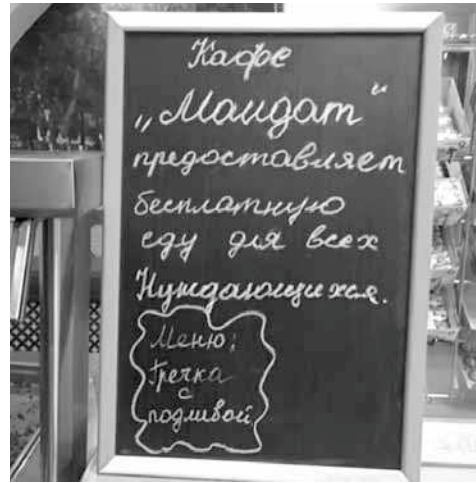 Кафе
„Мандат“
предоставляет
бесплатную
еду для всех
Нуждающихся.
Меню:
Гречка
с
подливой